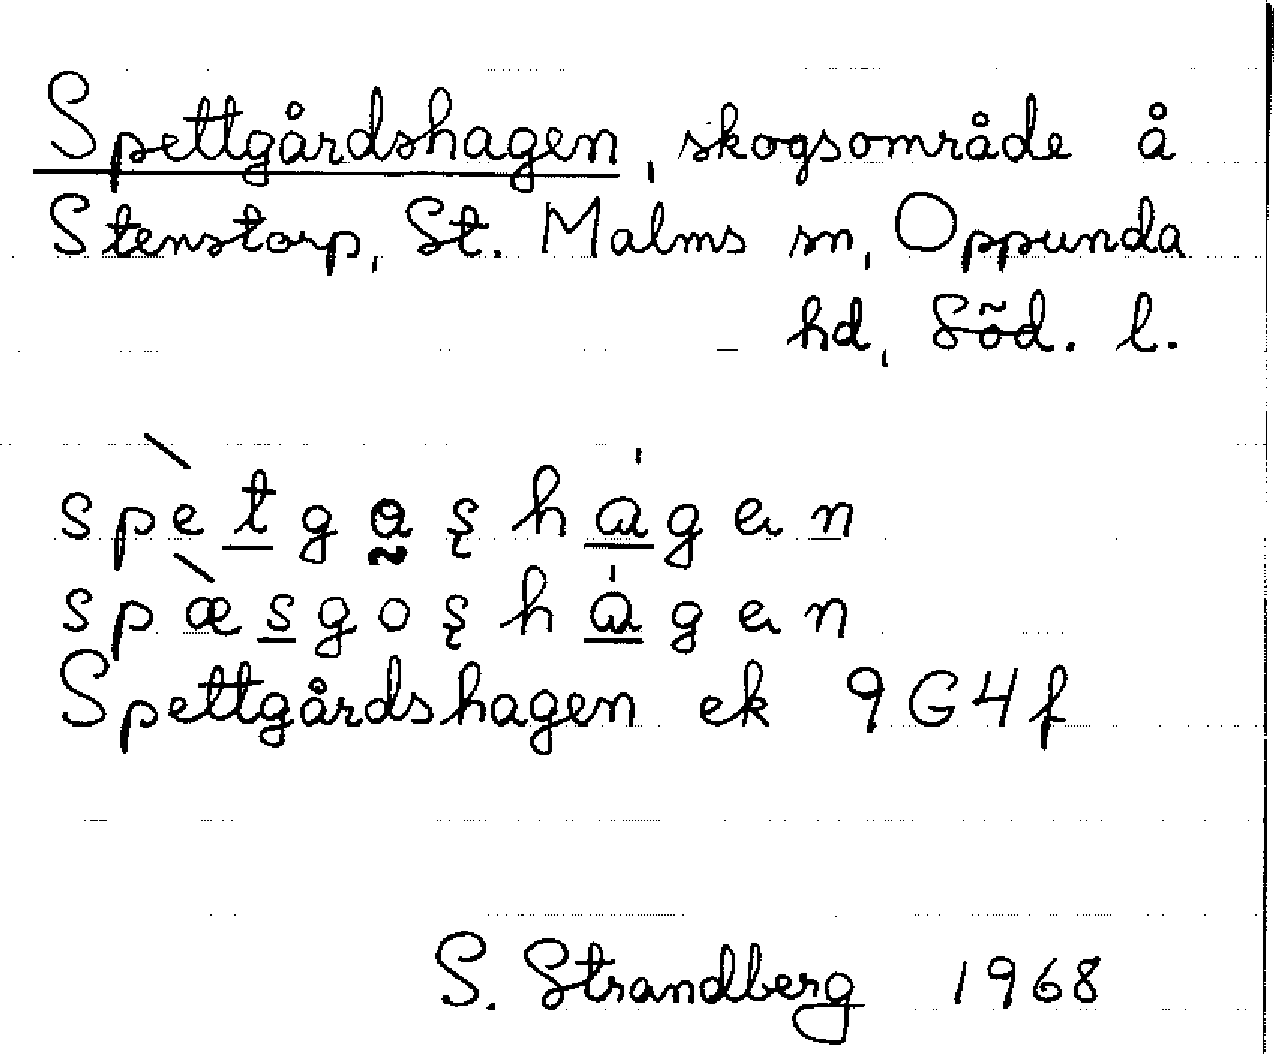 Spettgårdshagen, skogsområde å
Stenstorp, St. Malms sn, Oppunda
hd, Söd. l.
spètgaşhágen
spæ̀sgoşhágen
Spettgårdshagen ek 9G4f
S. Strandberg 1968